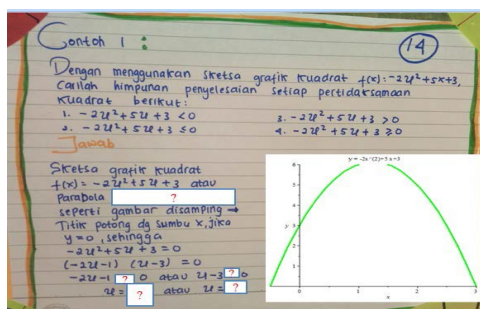 Contoh 1 :
14
Dengan menggunakan sketsa grafik kuadrat f(x):-2x²+5x+3,
carilah himpunan penyelesaian setiap pertidaksamaan
kuadrat berikut:
1. -2x²+5x+3 <0
2. -2x²+5x+3 ≤0
3. -2x²+5x+3 >0
4. -2x²+5x+3 ≥0
Jawab
Sketsa grafik kuadrat
f(x)= -2x²+5x+3 atau
Parabola ?
seperti gambar disamping →
Titik potong dg sumbu x, jika
y=0, sehingga
-2x²+5x+3=0
(-2x-1) (x-3) =0
-2x-1 ? 0 atau x-3 ? 0
x= ? atau x= ?
y = -2x^(2)+5 x+3
6
5
4
3
2
1
y
0
1
2
3
x